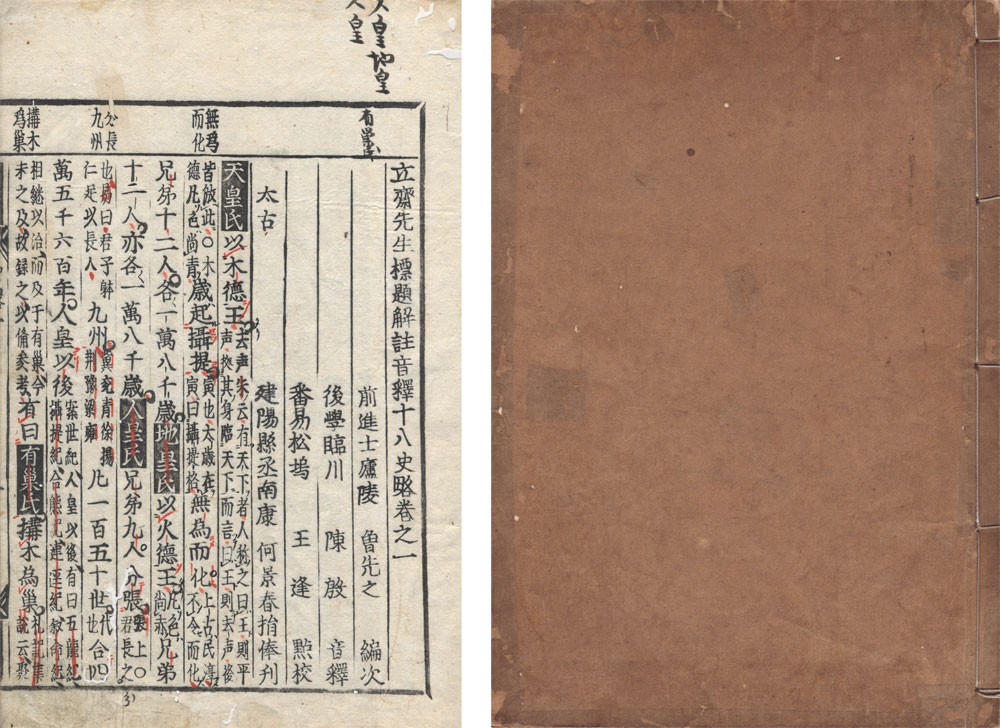 皇地皇
人皇
有巢氏
無為
而化
分長
九州
搆木
為巢
立齋先生標題解註音釋十八史略卷之一
前進士廬陵 魯先之 編次
後學臨川 陳殷 音釋
番昜松塢 王逢 點校
建陽縣丞南康 何景春捐俸刊
太古
天皇氏以木德王去声朱云有天下者人称之曰王則平声拠其身臨天下而言曰王則去声後
皆倣此○木德凡色尚青歲起攝提寅也太歲在寅曰攝提格無為而化上古民淳不令而化
兄弟十二人各一萬八千歲地皇氏以火德王凡色尚赤兄弟
十二人亦各一萬八千歲人皇氏兄弟九人分張上○君長之
也易曰君子躰仁足以長人九州冀兗青徐揚荊豫梁雍凡一百五十世代也合四
萬五千六百年人皇以後案世紀人皇以後有曰五龍紀攝提紀合熊紀連逕紀叙命紀
相継以治而及于有巢今未之及故録之以俻参考有曰有巢氏搆木為巢礼記集説云